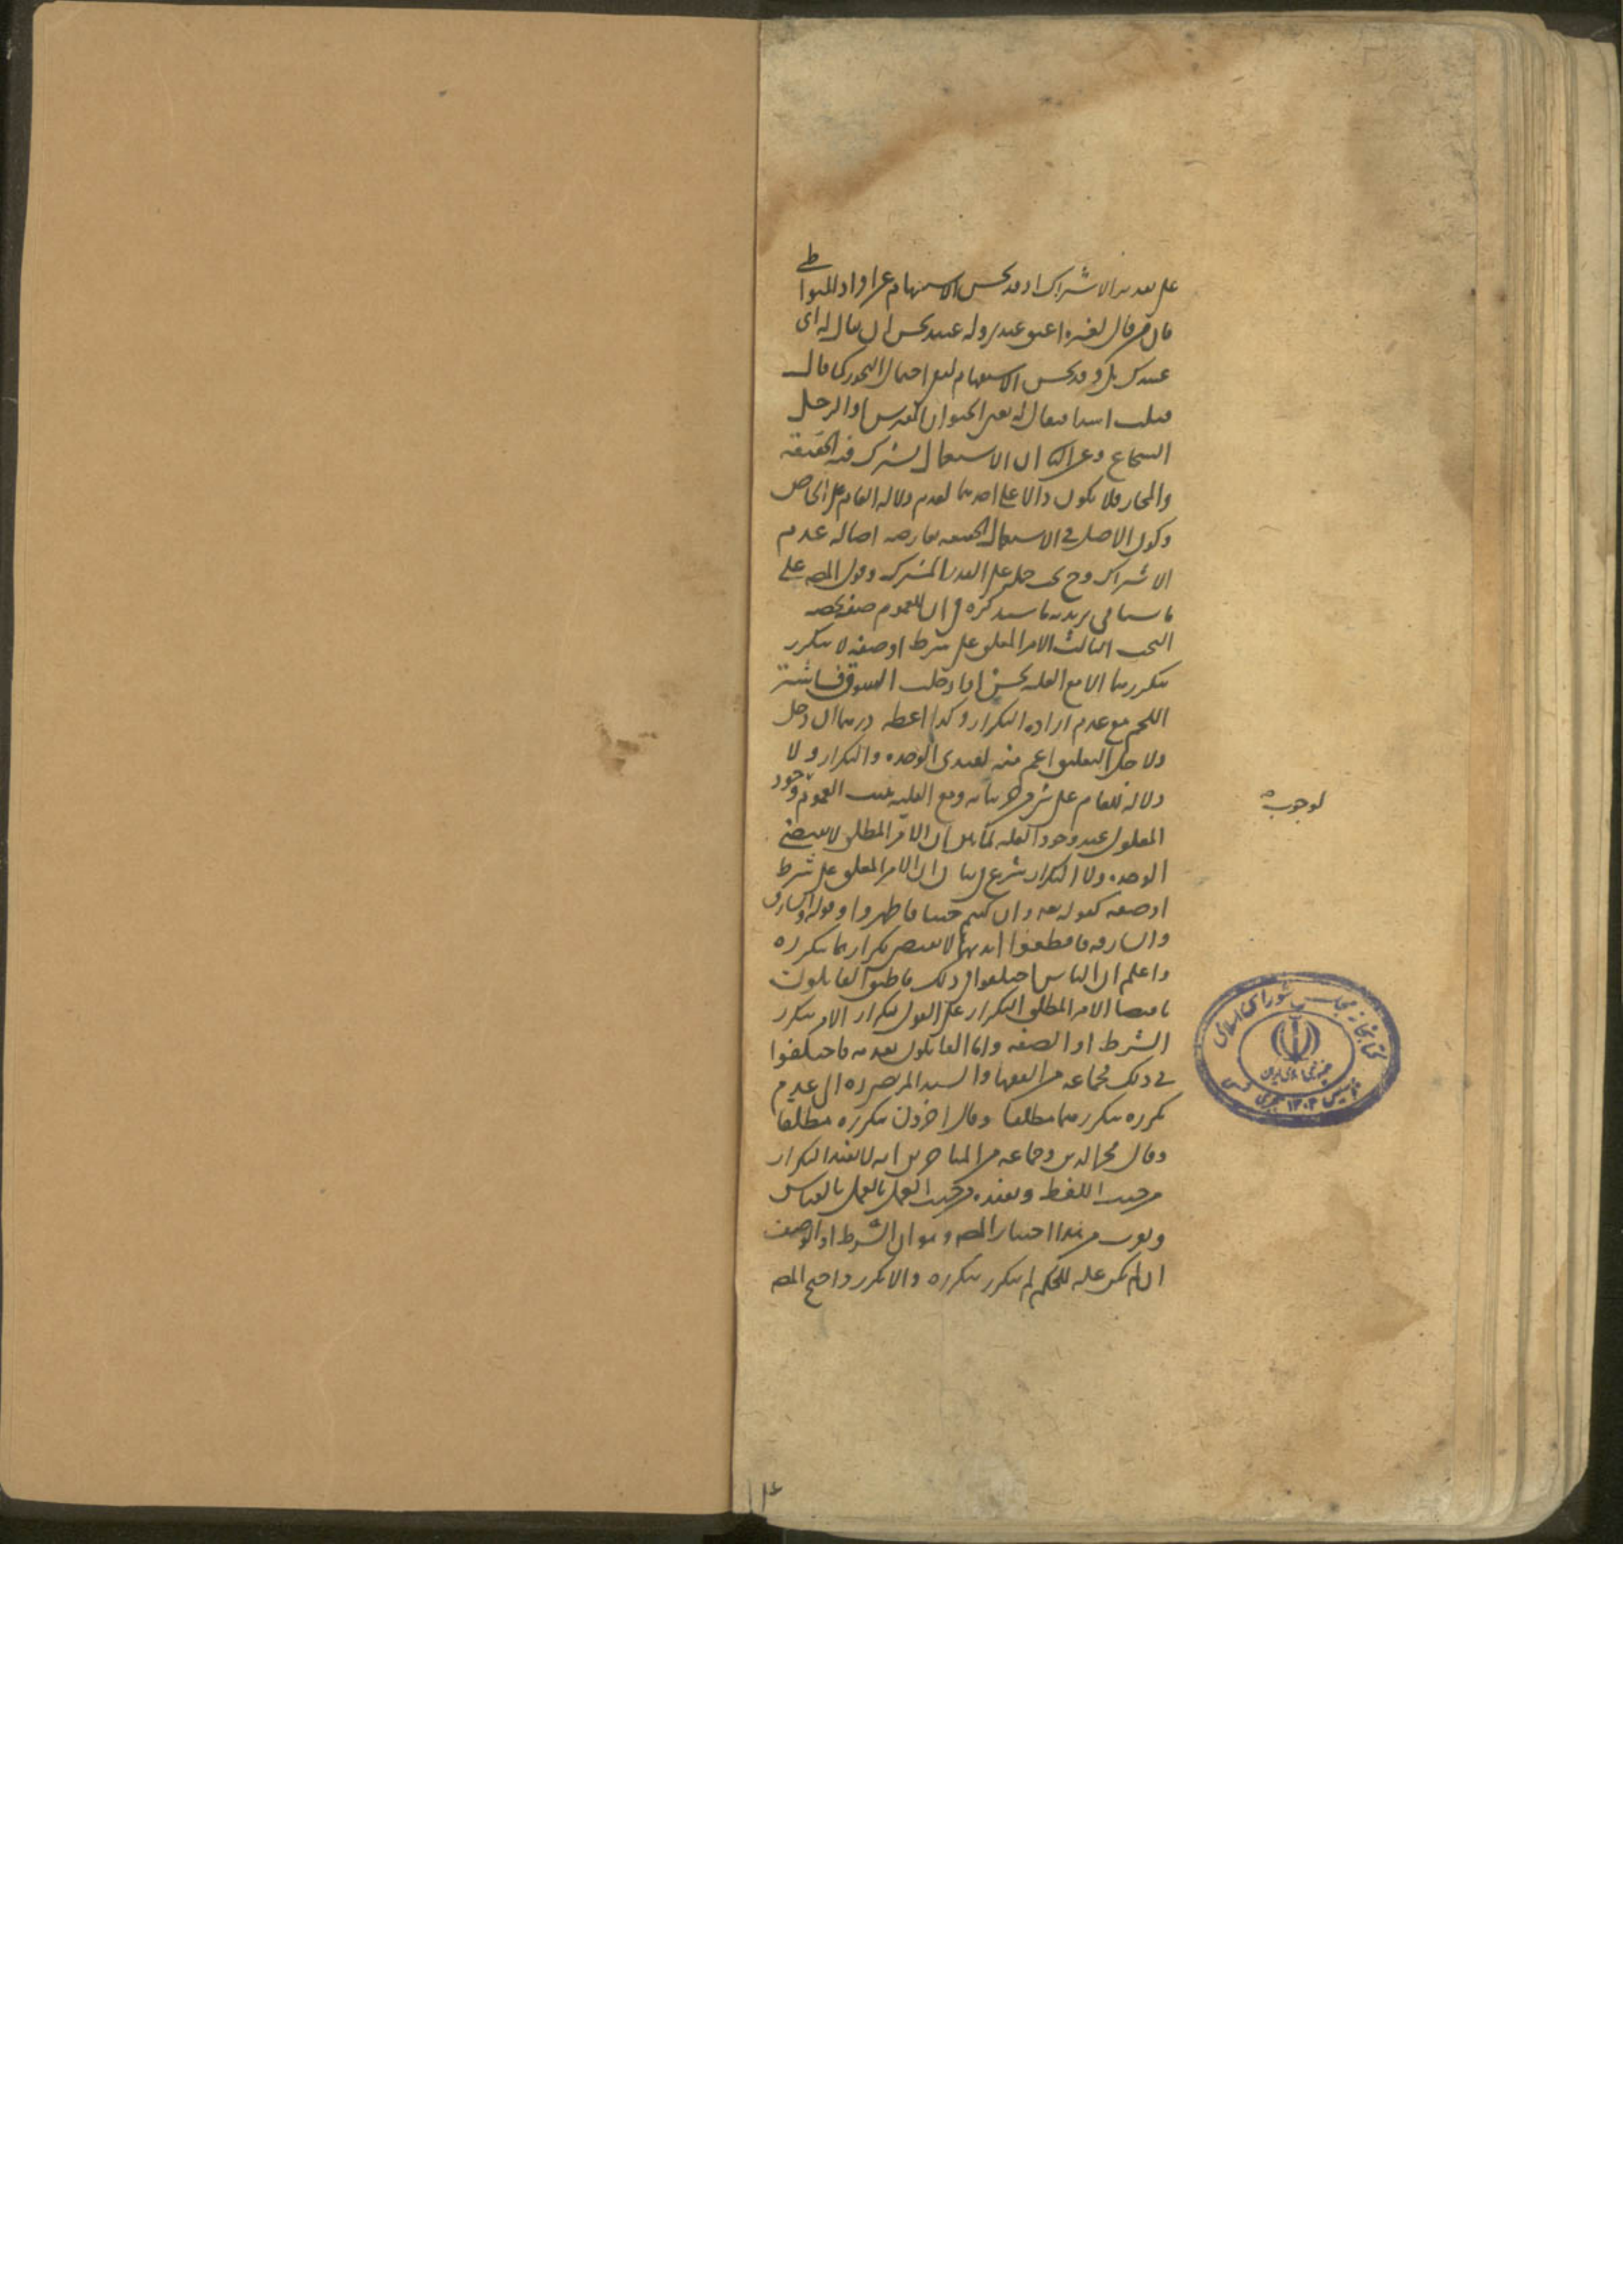 على تقدير الاشتراك اذ قد يحسن الاستفهام عن افراد المتواطى
فان من قال لغيره اعتق عبدى وله عبيد يحسن ان يقال له اى
عبيدك يكون وقد يحسن الاستفهام لدفع احتمال التجوز كما قال
قتلت اسدا فيقال له يعنى الحيوان المفترس او الرجل
الشجاع وعن الثانى ان الاستعمال يشترك فيه الحقيقة
والمجاز فلا يكون دالا على احدهما لعدم دلالة العام على الخاص
وكون الاصل فى الاستعمال الحقيقة يعارضه اصالة عدم
الاشتراك وح يجب حمله على القدر المشترك وقول المصه على
ما سياتى يريد به ما سيذكره فى ان للعموم صيغة تخصه
البحث الثالث الامر المعلق على شرط او صفة لا يتكرر
بتكررهما الا مع العلية لحسن اذا دخلت السوق فاشتر
اللحم مع عدم ارادة التكرار وكذا اعطه درهما ان دخل
ولاجل التعليق اعم من تقييدى الوحدة والتكرار ولا
دلالة للعام على شىء من جزئياته ومع العلية يثبت العموم لوجود
لوجوب
المعلول عند وجود العلة لما بين ان الامر المطلق لا يقتضى
الوحدة ولا التكرار شرع فى بيان ان الامر المعلق على شرط
او صفة كقوله تعه وان كنتم جنبا فاطهروا وقوله والسارق
والسارقة فاقطعوا ايديهما لا يقتضى تكراره بتكرره
واعلم ان الناس اختلفوا فى ذلك فاطبق القائلون
باقتضا الامر المطلق التكرار على القول بتكرار الامر بتكرر
الشرط او الصفة واما القائلون بعدمه فاختلفوا
فى ذلك فجماعة من الفقها والسيد المرتضى ره الى عدم
تكرره بتكررهما مطلقا وقال اخرون بتكرره مطلقا
وقال فخر الدين وجماعة من المتاخرين انه لا يفيد التكرار
من حيث اللفظ ويفيده من حيث العمل بالقياس
ويقرب من هذا اختيار المصه وهو ان الشرط او الوصف
ان لم يكن علة للحكم لم يتكرر بتكرره والا تكرر واحتج المصه
كتابخانه مجلس شورای اسلامی
جمهوری اسلامی ايران